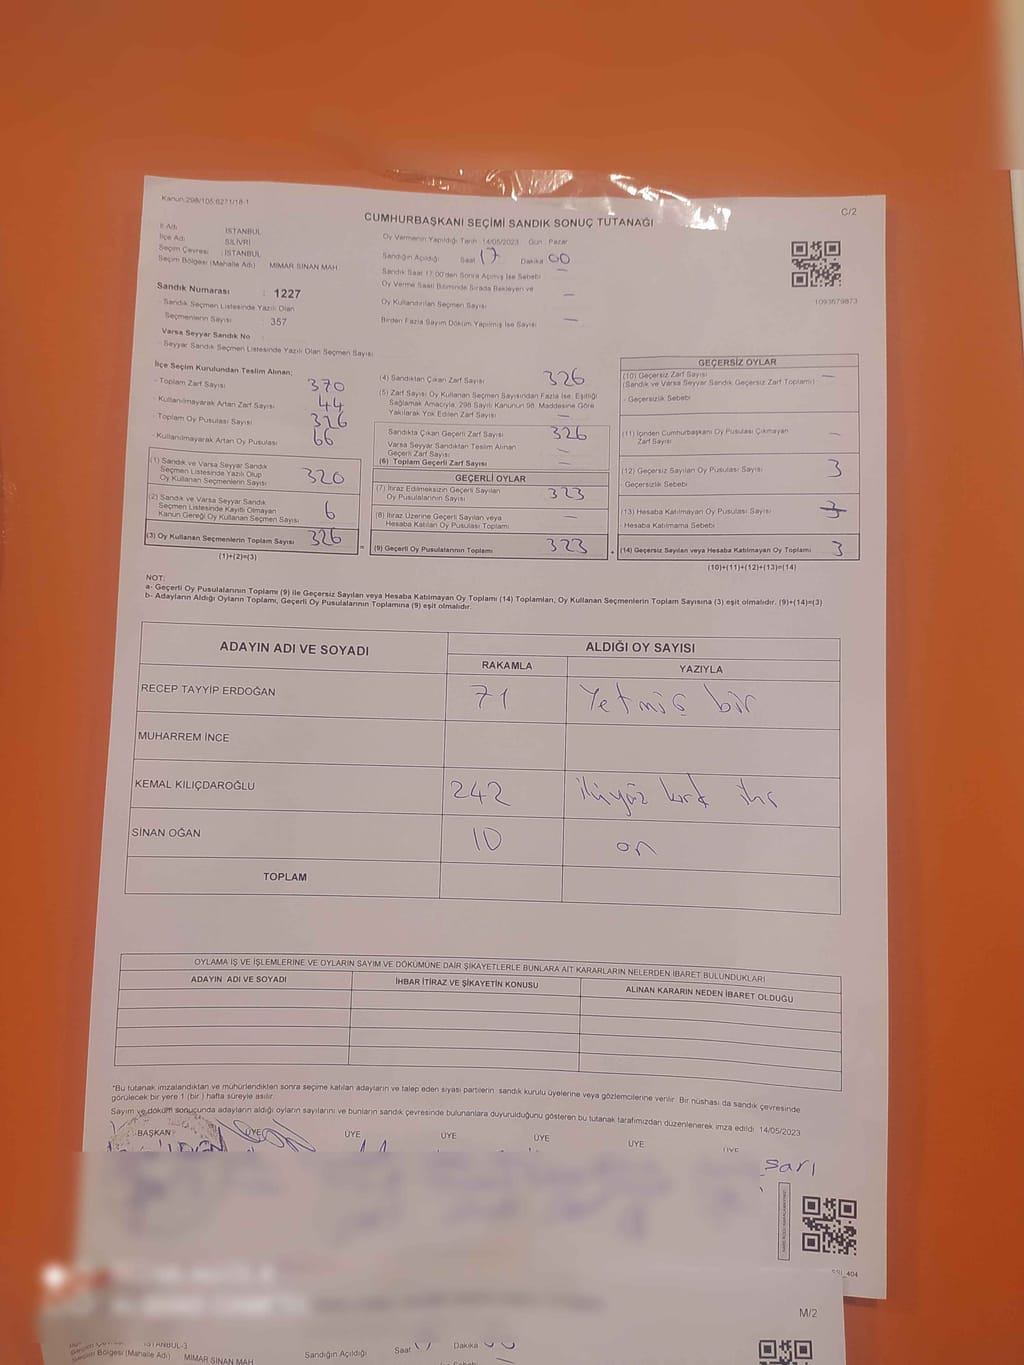 Kanun:298/105,6271/18-1
C/2
CUMHURBAŞKANI SEÇİMİ SANDIK SONUÇ TUTANAĞI
İl Adı : İSTANBUL
İlçe Adı : SİLİVRİ
Seçim Çevresi : İSTANBUL
Seçim Bölgesi (Mahalle Adı) : MİMAR SİNAN MAH
Sandık Numarası : 1227
Sandık Seçmen Listesinde Yazılı Olan
Seçmenlerin Sayısı : 357
Varsa Seyyar Sandık No
Seyyar Sandık Seçmen Listesinde Yazılı Olan Seçmen Sayısı
Oy Vermenin Yapıldığı Tarih : 14/05/2023 Gün : Pazar
Sandığın Açıldığı Saat 17 Dakika 00
Sandık Saat 17:00'den Sonra Açılmış İse Sebebi —
Oy Verme Saati Bitiminde Sırada Bekleyen ve
Oy Kullandırılan Seçmen Sayısı —
Birden Fazla Sayım Döküm Yapılmış İse Sayısı —
1093679873
İlçe Seçim Kurulundan Teslim Alınan;
- Toplam Zarf Sayısı 370
- Kullanılmayarak Artan Zarf Sayısı 44
- Toplam Oy Pusulası Sayısı 326
- Kullanılmayarak Artan Oy Pusulası 66
(1) Sandık ve Varsa Seyyar Sandık
Seçmen Listesinde Yazılı Olup
Oy Kullanan Seçmenlerin Sayısı 320
(2) Sandık ve Varsa Seyyar Sandık
Seçmen Listesinde Kayıtlı Olmayan
Kanun Gereği Oy Kullanan Seçmen Sayısı 6
(3) Oy Kullanan Seçmenlerin Toplam Sayısı 326
(1)+(2)=(3)
(4) Sandıktan Çıkan Zarf Sayısı 326
(5) Zarf Sayısı Oy Kullanan Seçmen Sayısından Fazla İse, Eşitliği
Sağlamak Amacıyla; 298 Sayılı Kanunun 98. Maddesine Göre
Yakılarak Yok Edilen Zarf Sayısı —
Sandıkta Çıkan Geçerli Zarf Sayısı 326
Varsa Seyyar Sandıktan Teslim Alınan
Geçerli Zarf Sayısı —
(6) Toplam Geçerli Zarf Sayısı —
GEÇERLİ OYLAR
(7) İtiraz Edilmeksizin Geçerli Sayılan
Oy Pusulalarının Sayısı 323
(8) İtiraz Üzerine Geçerli Sayılan veya
Hesaba Katılan Oy Pusulası Toplamı —
= (9) Geçerli Oy Pusulalarının Toplamı 323 +
GEÇERSİZ OYLAR
(10) Geçersiz Zarf Sayısı —
(Sandık ve Varsa Seyyar Sandık Geçersiz Zarf Toplamı)
- Geçersizlik Sebebi
(11) İçinden Cumhurbaşkanı Oy Pusulası Çıkmayan
Zarf Sayısı —
(12) Geçersiz Sayılan Oy Pusulası Sayısı 3
- Geçersizlik Sebebi
(13) Hesaba Katılmayan Oy Pusulası Sayısı 3
- Hesaba Katılmama Sebebi
(14) Geçersiz Sayılan veya Hesaba Katılmayan Oy Toplamı 3
(10)+(11)+(12)+(13)=(14)
NOT:
a- Geçerli Oy Pusulalarının Toplamı (9) ile Geçersiz Sayılan veya Hesaba Katılmayan Oy Toplamı (14) Toplamları, Oy Kullanan Seçmenlerin Toplam Sayısına (3) eşit olmalıdır. (9)+(14)=(3)
b- Adayların Aldığı Oyların Toplamı, Geçerli Oy Pusulalarının Toplamına (9) eşit olmalıdır.
ADAYIN ADI VE SOYADI
ALDIĞI OY SAYISI
RAKAMLA YAZIYLA
RECEP TAYYİP ERDOĞAN 71 Yetmiş bir
MUHARREM İNCE
KEMAL KILIÇDAROĞLU 242 ikiyüz kırk iki
SİNAN OĞAN 10 on
TOPLAM
OYLAMA İŞ VE İŞLEMLERİNE VE OYLARIN SAYIM VE DÖKÜMÜNE DAİR ŞİKAYETLERLE BUNLARA AİT KARARLARIN NELERDEN İBARET BULUNDUKLARI
ADAYIN ADI VE SOYADI İHBAR İTİRAZ VE ŞİKAYETİN KONUSU ALINAN KARARIN NEDEN İBARET OLDUĞU
*Bu tutanak imzalandıktan ve mühürlendikten sonra seçime katılan adayların ve talep eden siyasi partilerin sandık kurulu üyelerine veya gözlemcilerine verilir. Bir nüshası da sandık çevresinde
görülecek bir yere 1 (bir) hafta süreyle asılır.
Sayım ve döküm sonuçunda adayların aldığı oyların sayılarını ve bunların sandık çevresinde bulunanlara duyurulduğunu gösteren bu tutanak tarafımızdan düzenlenerek imza edildi. 14/05/2023
BAŞKAN ÜYE ÜYE ÜYE ÜYE ÜYE ÜYE
sarı
404
M/2
İSTANBUL-3
Seçim Bölgesi (Mahalle Adı) MİMAR SİNAN MAH
Sandığın Açıldığı Saat 17 Dakika